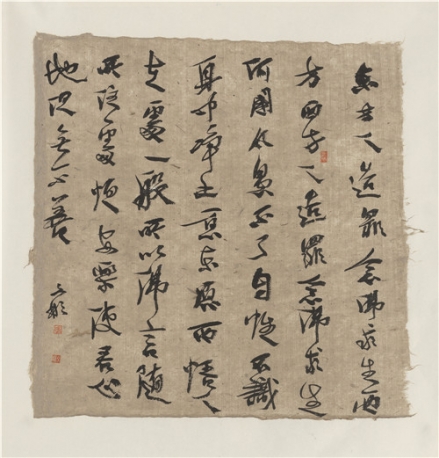 东方人造罪念佛求生西
方西方人造罪念佛求生
何國凡愚不了自性不識
身中淨土願东願西悟人
在處一般所以佛言隨
所住處恒安樂使君心
地但无不善